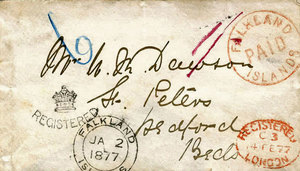 19
FALKLAND
PAID
ISLANDS
Dawson
St. Peters
Bedford
Beds
REGISTERED
FALKLAND
JA 2
1877
REGISTERED
4 FE 77
LONDON